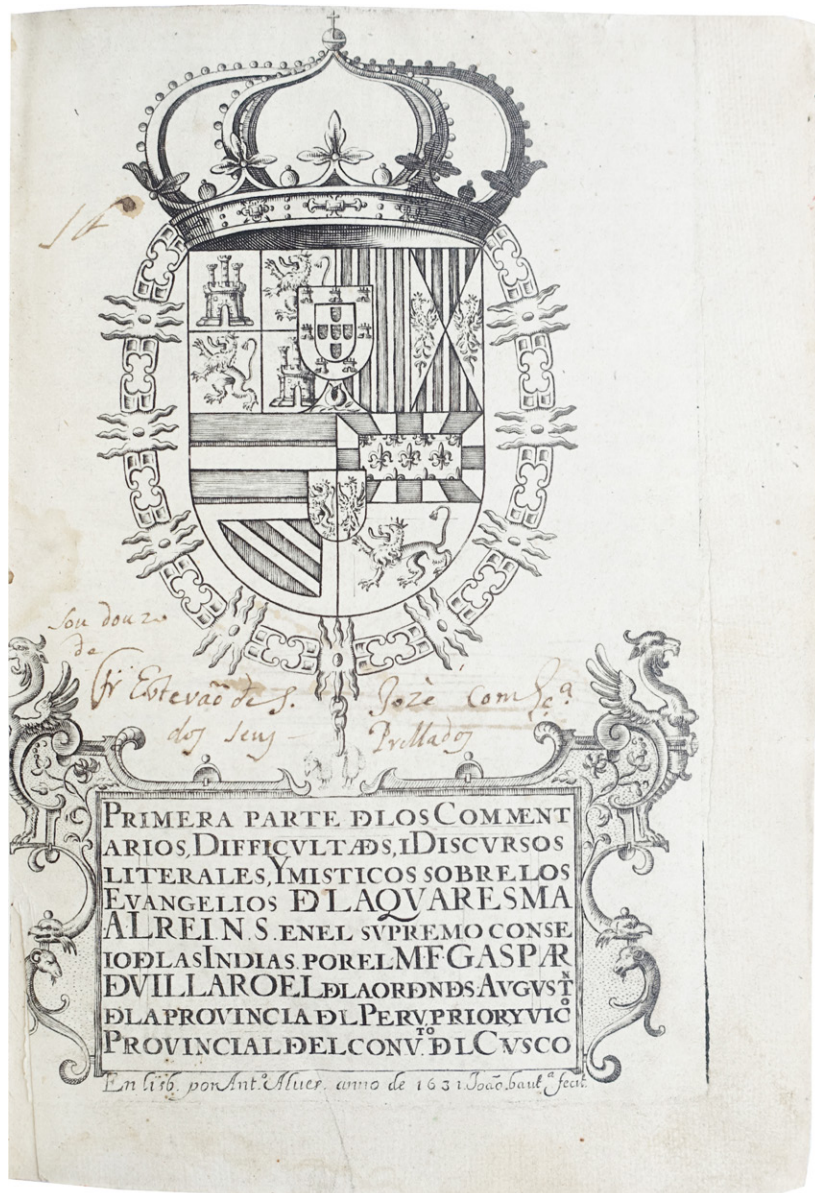 Sou do uzo
de
fr Estevão de S. Jozè com lça
dos seus Prellados
PRIMERA PARTE DLOS COMMENT
ARIOS, DIFFICVLTADS, I DISCVRSOS
LITERALES, Y MISTICOS SOBRE LOS
EVANGELIOS DLA QVARESMA
AL REI. N. S. EN EL SVPREMO CONSE
IO DLAS INDIAS. POR EL M F. GASPAR
D VILLAROEL DLA ORDN D S AVGVSTNO
DLA PROVINCIA DL PERV, PRIOR Y VICO
PROVINCIAL DEL CONVTO. DL CVSCO
En lisb. por Ant.o Aluer. anno de 1631. João baut.a fecit.